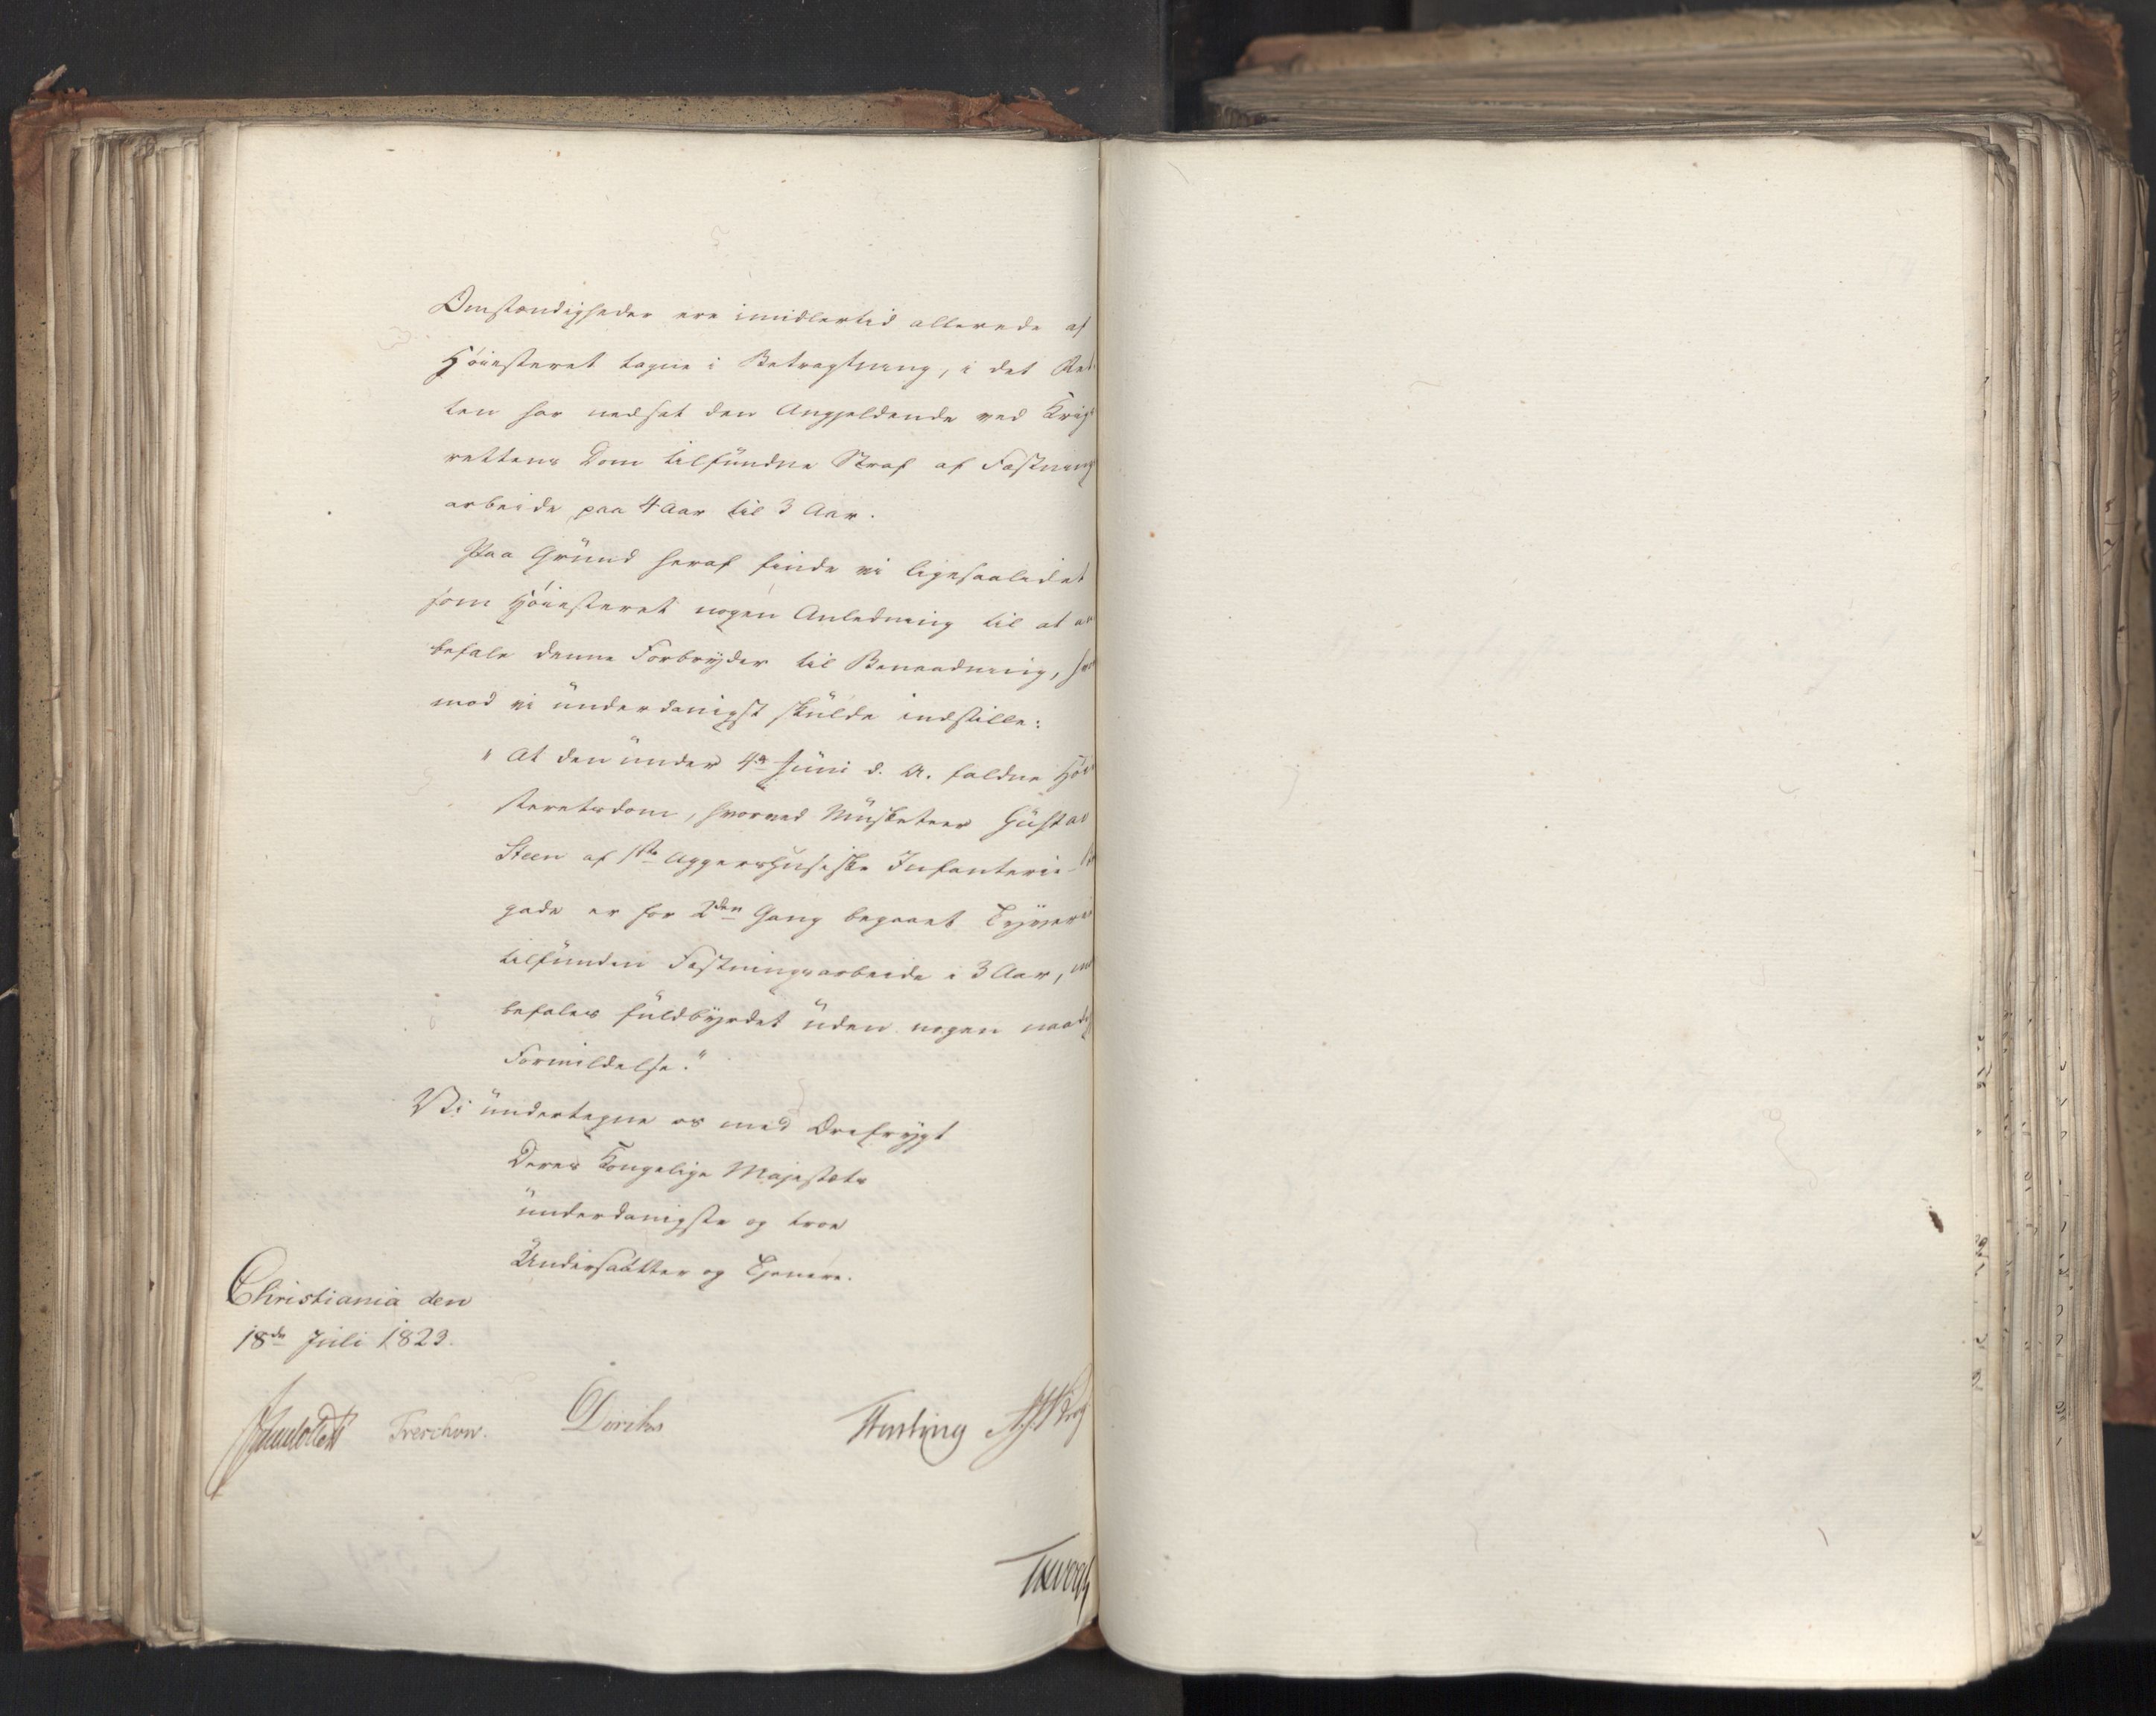 Omstændigheder ere imidlertid allerede af
Høiesteret tagne i Betragtning, i det Ret
ten har nedsat den Angjeldende ved Krigs
rettens Dom tilfundne Straf af Fæstnings
arbeide paa 4 Aar til 3 Aar.
Paa Grund heraf finde vi ligesaalidet
som Høiesteret nogen Anledning til at an
befale denne Forbryder til Benaadning, hvor
med vi underdanigst skulde indstille:
"At den under 4de Juni d. A. faldne Høie
steretsdom, hvorved Musketeer Gustav
Steen af 1ste Aggershusiske Infanterie Bri
gade er for 2den Gang begaaet Tyverie
tilfunden Fæstningsarbeide i 3 Aar,
befales fuldbyrdet uden nogen naadig
Formildelse."
Vi undertegne os med Ærefrygt
Deres Kongelige Majestæts
underdanigste og troe
Undersaatter og Tjenere.
Christiania den
18de Juli 1823.
Treschow. Diriks